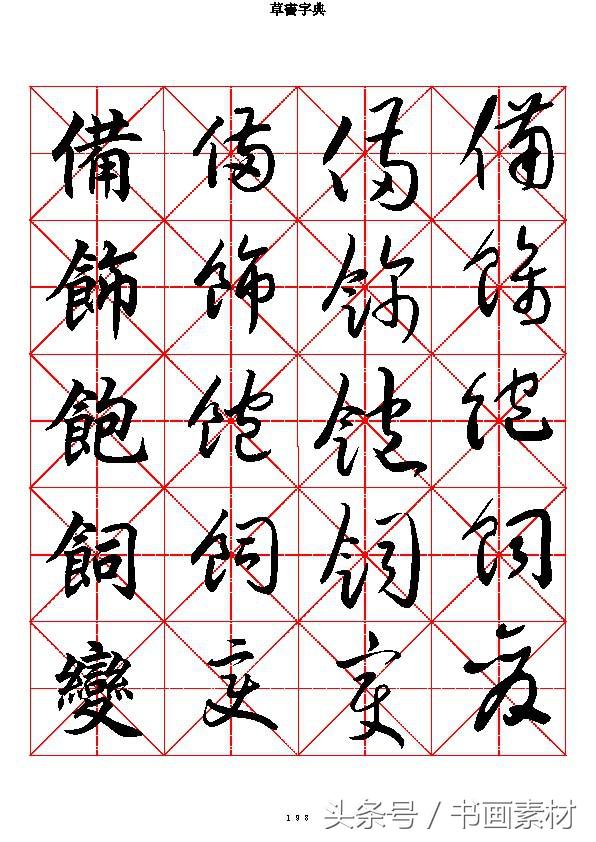 草書字典
備 備 備 備
飾 飾 飾 飾
飽 飽 飽 飽
飼 飼 飼 飼
變 變 變 變
198
头条号 / 书画素材